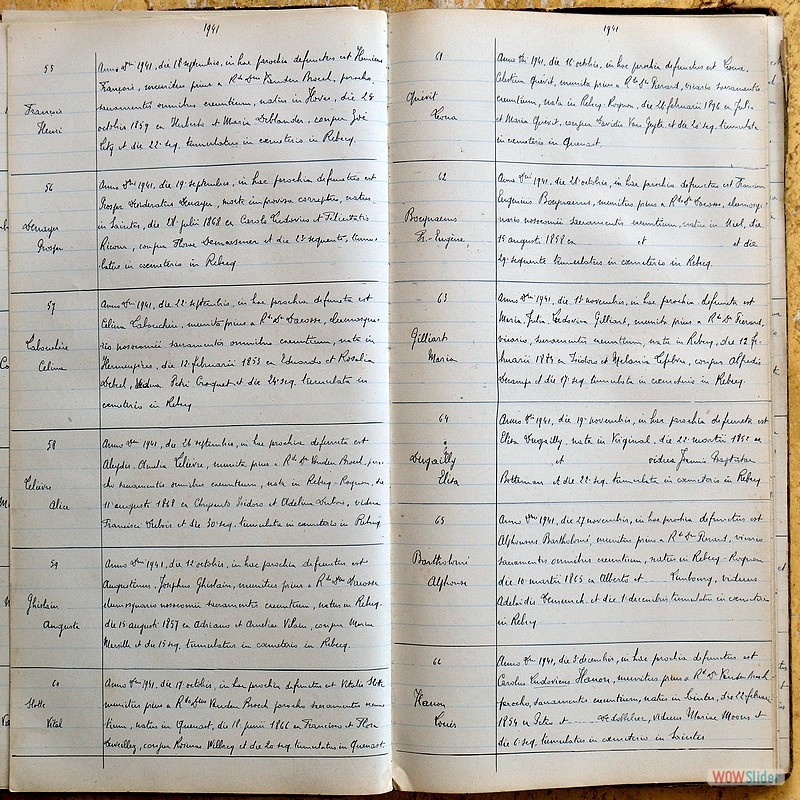 1941
55
François
Henri
Anno Dni 1941, die 18 septembris, in hac parochia defunctus est Henricus
François, munitus prius a Rdo Dno Vanden Broeck, parocho,
sacramentis omnibus exeuntium, natus in Hoves, die 24
octobris 1859 ex Huberto et Maria Deblander, conjux
et die 22 seq. tumulatus in cemeterio in Rebecq.
56
Denayer
Prosper
Anno Dni 1941, die 19 septembris, in hac parochia defunctus est
Prosper Denayer, morte improvisa correptus, natus
in Saintes, die 28 julii 1868 ex Carolo Ludovico et Felicitate
conjux Florae et die 22 sequente, tumu-
latus in coemeterio in Rebecq
57
Labouchère
Célina
Anno Dni 1941, die 22 septembris, in hac parochia defuncta est
Célina munita prius a Rdo Do Dacosse, eleemosyna-
rio nosocomii sacramentis omnibus exeuntium, nata in
Hennuyères, die 12 februarii 1853 ex Eduardo et Rosalia
vidua Petri Croquet et die 24 seq. tumulata in
coemeterio in Rebecq
58
Lelièvre
Alice
Anno Dni 1941, die 26 septembris, in hac parochia defuncta est
Amelia Lelièvre, munita prius a Rdo Do Vanden Broeck, paro-
cho sacramentis omnibus exeuntium, nata in Rebecq-Rognon, die
11 augusti 1868 ex Isidoro et Adelina Dubois, vidua
Francisci Dubois et die 30 seq. tumulata in coemeterio in Rebecq
59
Ghislain
Auguste
Anno Dni 1941, die 12 octobris, in hac parochia defunctus est
Augustinus Josephus Ghislain, munitus prius a Rdo Dno Dacosse
eleemosynario nosocomii sacramentis exeuntium, natus in Rebecq
die 15 augusti 1857 ex Adriano et Amelia Vilain, conjux Maria
et die 15 seq. tumulatus in coemeterio in Rebecq.
60
Hotte
Vital
Anno Dni 1941, die 17 octobris, in hac parochia defunctus est Vitalis Hotte
munitus prius a Rdo Dno Vanden Broeck parocho sacramentis exeun-
tium, natus in Quenast, die 18 junii 1866 ex Francisco et Flora
conjux et die 20 seq. tumulatus in Quenast.
1941
61
Quévit
Léona
Anno Dni 1941, die 16 octobris, in hac parochia defuncta est Leona
Celestina Quévit, munita prius a Rdo Do Pierard, vicario sacramentis
exeuntium, nata in Rebecq-Rognon, die 26 februarii 1896 ex Julio
et Maria Quévit, conjux Davidis Van et die 20 seq. tumulata
in cemeterio in Quenast.
62
Boeynaems
Fr.-Eugène
Anno Dni 1941, die 28 octobris, in hac parochia defunctus est Franciscus
Eugenius Boeynaems, munitus prius a Rdo Do Dacosse, eleemosy-
nario nosocomii sacramentis exeuntium, natus in Niel, die
15 augusti 1858 ex et et die
29 sequente tumulatus in coemeterio in Rebecq.
63
Gilliart
Maria
Anno Dni 1941, die 15 novembris, in hac parochia defuncta est
Maria Julia Ludovica Gilliart, munita prius a Rdo Do Pierard,
vicario, sacramentis exeuntium, nata in Rebecq, die 12 fe-
bruarii 1885 ex Isidoro et Melania Lefebvre, conjux Alfredi
Descamps et die 17 seq. tumulata in coemeterio in Rebecq.
64
Dugailly
Elisa
Anno Dni 1941, die 19 novembris, in hac parochia defuncta est
Elisa Dugailly, nata in Virginal, die 22 martii 1852 ex
et vidua Joannis Baptistae
Botteman et die 22 seq. tumulata in coemeterio in Rebecq
65
Bartholomé
Alphonse
Anno Dni 1941, die 27 novembris, in hac parochia defunctus est
Alphonsus Bartholomé, munitus prius a Rdo Do Pierard, vicario
sacramentis omnibus exeuntium, natus in Rebecq-Rognon
die 10 martii 1865 ex Alberto et Limbourg, viduus
Adelaidis et die 1 decembris tumulatus in coemeterio
in Rebecq
66
Hanon
Louis
Anno Dni 1941, die 3 decembris, in hac parochia defunctus est
Carolus Ludovicus Hanon, munitus prius a Rdo Do Vanden Broeck
parocho, sacramentis exeuntium, natus in Saintes, die 22 februarii
1854 ex Petro et viduus Mariae Moens et
die 6 seq. tumulatus in coemeterio in Saintes
WOWSlider